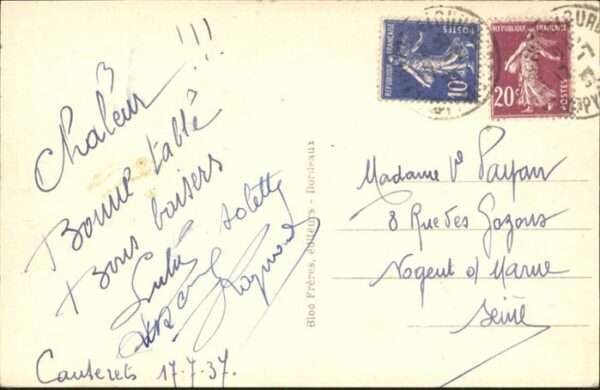 Chaleur !!!
Bonne table
Bons baisers
Lulu Arlette
Raymond
Cauterets 17.7.37.
Bloc Frères, éditeurs - Bordeaux
REPUBLIQUE FRANÇAISE
POSTES
10c
REPUBLIQUE FRANÇAISE
20c
POSTES
LOURD
Madame Ve Payan
8 Rue des Gazons
Nogent s/ Marne
Seine